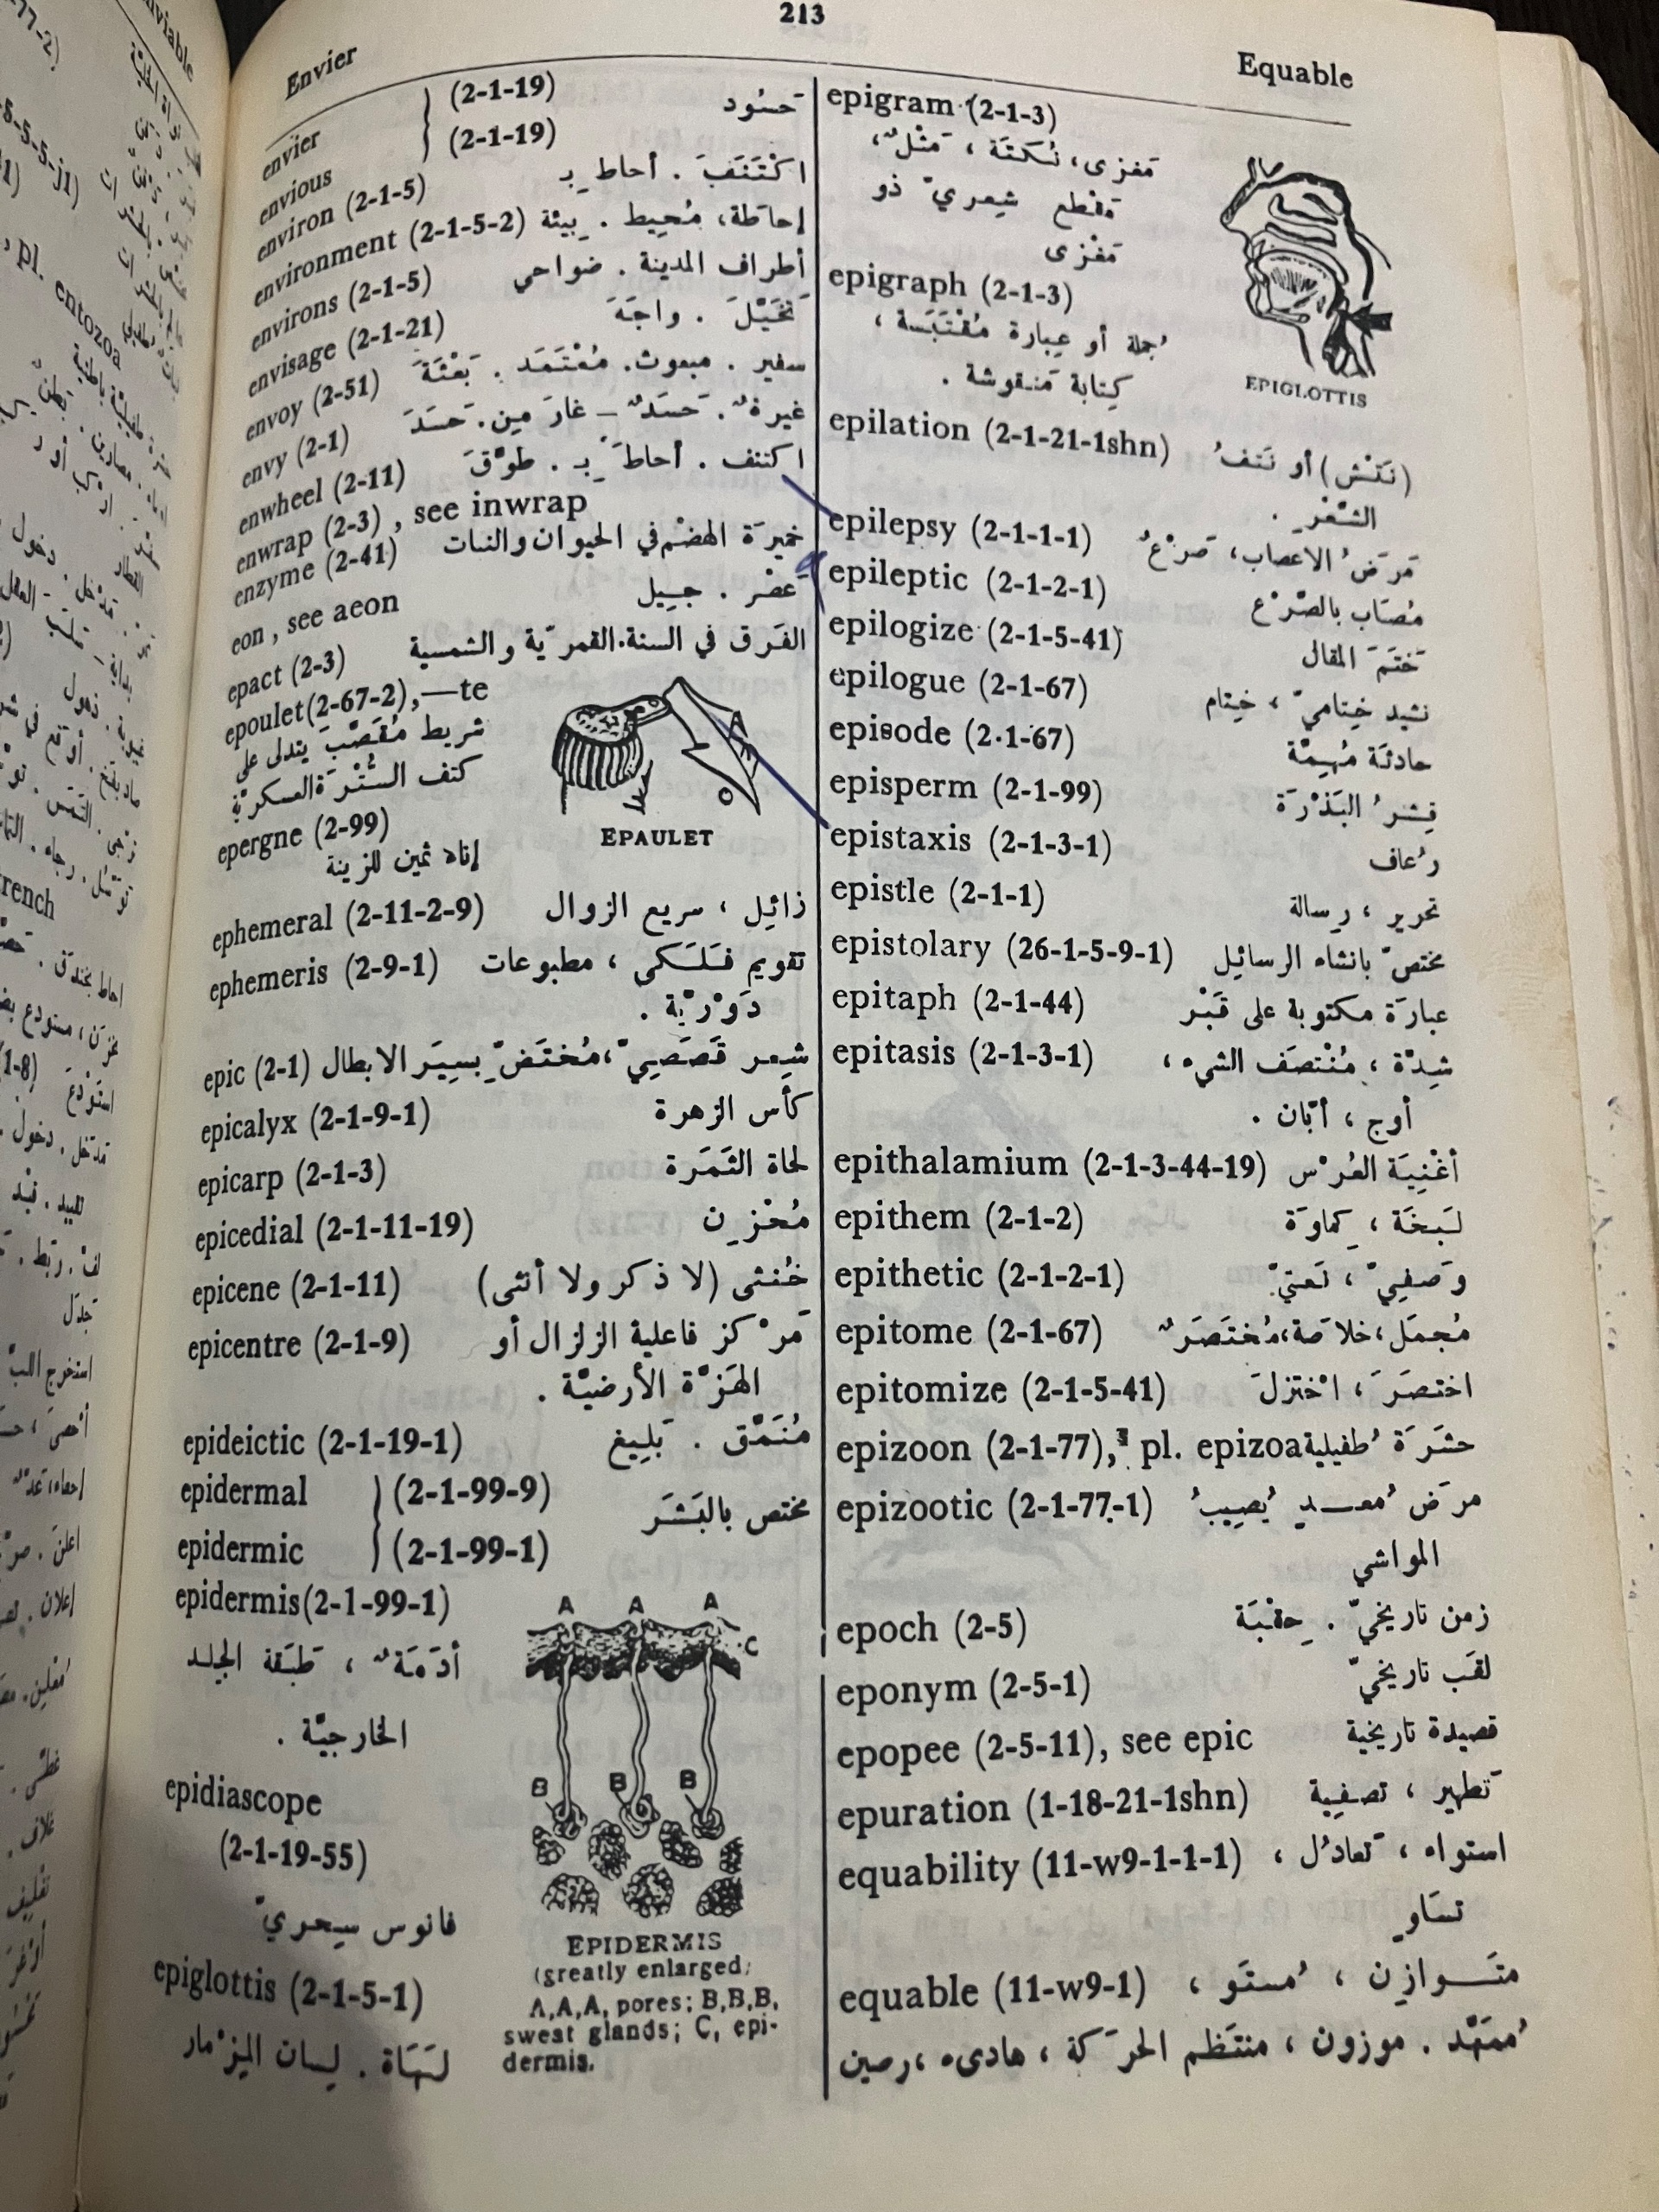 213
Envier
Equable
envier (2-1-19) حَسُود
envious (2-1-19)
environ (2-1-5) اكْتَنَفَ . أحاط بِـ
environment (2-1-5-2) إحاطَة، مُحِيط . بِيئة
environs (2-1-5) أطراف المدينة . ضواحي
envisage (2-1-21) تَخَيَّلَ . واجَهَ
envoy (2-51) سفير . مبعوث. مُعْتَمَد . بَعْثَة
envy (2-1) غيرةٌ . حَسَدٌ – غارَ مِن. حَسَدَ
enwheel (2-11) اكتنف . أحاطَ بِـ . طوَّقَ
enwrap (2-3) , see inwrap
enzyme (2-41) خميرَة الهضْم في الحيوان والنبات
eon , see aeon عَصْر . جِيل
epact (2-3) الفَرق في السنة القمريّة والشمسية
epoulet(2-67-2),—te
شريط مُقَصَّب يتدلى على
كتف السُّتْرَة العسكريّة
EPAULET
epergne (2-99)
إناء ثمين للزينة
ephemeral (2-11-2-9) زائِل ، سريع الزوال
ephemeris (2-9-1) تقويم فَلَكى ، مطبوعات
دَوْرِيَّة .
epic (2-1) شِعر قَصَصِيّ،مُختَصّ بسِيَر الابطال
epicalyx (2-1-9-1) كأس الزهرة
epicarp (2-1-3) لحاة الثَمَرَة
epicedial (2-1-11-19) مُحْزِن
epicene (2-1-11) خُنثى (لا ذكر ولا أنثى)
epicentre (2-1-9) مَرْكز فاعلية الزلزال أو
الهَزَّة الأرضيَّة .
epideictic (2-1-19-1) مُنَمَّق . بَلِيغ
epidermal (2-1-99-9) مختص بالبَشَر
epidermic (2-1-99-1)
epidermis(2-1-99-1)
أدَمَةٌ ، طَبَقة الجلد
الخارجيَّة .
A A A
C
B B B
EPIDERMIS
(greatly enlarged)
A,A,A, pores; B,B,B,
sweat glands; C, epi-
dermis.
epidiascope
(2-1-19-55)
فانوس سِحريّ
epiglottis (2-1-5-1)
لَهَاة . لِسان المِزْمار
epigram (2-1-3)
مَغزى، نُكتَة ، مَثْلٌ،
مَقطع شِعريّ ذو
مَغْزى
epigraph (2-1-3)
جُملة أو عِبارة مُقْتَبَسة ،
كِتابة مَنقوشة .
EPIGLOTTIS
epilation (2-1-21-1shn) (نَتْش) أو نَتفُ
الشَعْر .
epilepsy (2-1-1-1) مَرَضُ الاعصاب، صَرْعٌ
epileptic (2-1-2-1) مُصَاب بالصَّرْع
epilogize (2-1-5-41) خَتَمَ المقال
epilogue (2-1-67) نشيد خِتاميّ ، خِتام
episode (2-1-67) حادثَة مُهِمَّة
episperm (2-1-99) قِشرُ البَذْرَة
epistaxis (2-1-3-1) رُعاف
epistle (2-1-1) تحرير ، رِسالة
epistolary (26-1-5-9-1) مختصّ بانشاء الرسائِل
epitaph (2-1-44) عبارَة مكتوبة على قَبْر
epitasis (2-1-3-1) شِدَّة ، مُنْتصَف الشيء ،
أوج ، أبّان .
epithalamium (2-1-3-44-19) أغْنِيَة العُرْس
epithem (2-1-2) لَبخَة ، كِماوَة
epithetic (2-1-2-1) وَصفِيّ ، نَعتيّ
epitome (2-1-67) مُجمَل،خلاصَة،مُختَصَرٌ
epitomize (2-1-5-41) اختصَرَ ، اخْتزلَ
epizoon (2-1-77), pl. epizoa حشَرَة طُفيلية
epizootic (2-1-77-1) مرَض مُعدٍ يُصِيبُ
المواشي
epoch (2-5) زمن تاريخيّ . حِقْبَة
eponym (2-5-1) لقَب تاريخيّ
epopee (2-5-11), see epic قصيدة تاريخية
epuration (1-18-21-1shn) تَطهير ، تصفِية
equability (11-w9-1-1-1) استواء ، تَعادُل ،
تسَاوٍ
equable (11-w9-1) متَوازِن ، مُستَو ،
مُمَهَّد . موزون ، منتَظم الحرَكة ، هادىء ،رصين